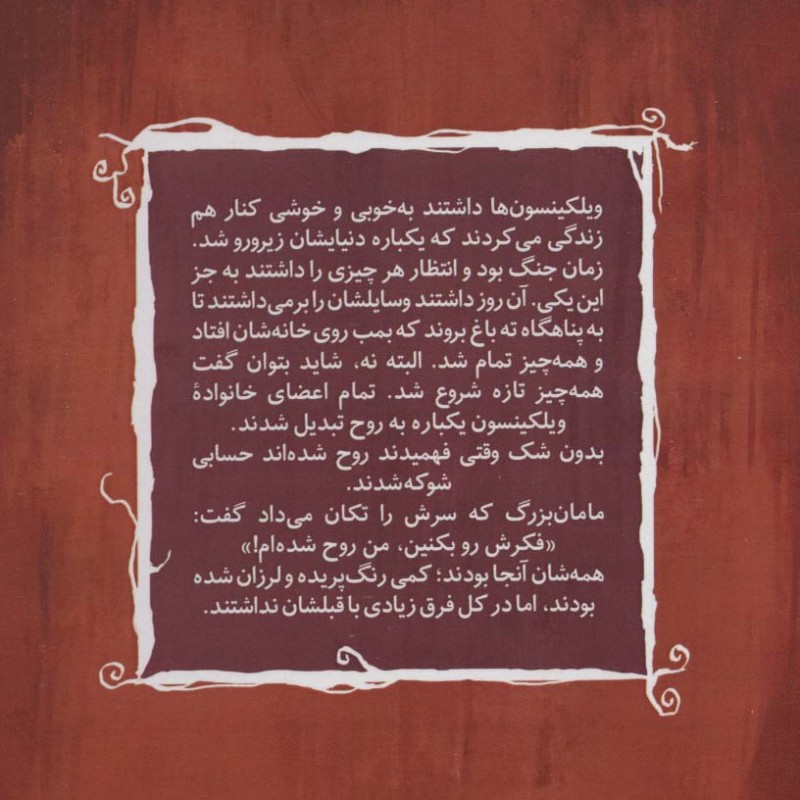 ویلکینسون‌ها داشتند به‌خوبی و خوشی کنار هم
زندگی می‌کردند که یکباره دنیایشان زیرورو شد.
زمان جنگ بود و انتظار هر چیزی را داشتند به جز
این یکی. آن روز داشتند وسایلشان را برمی‌داشتند تا
به پناهگاه ته باغ بروند که بمب روی خانه‌شان افتاد
و همه‌چیز تمام شد. البته نه، شاید بتوان گفت
همه‌چیز تازه شروع شد. تمام اعضای خانوادهٔ
ویلکینسون یکباره به روح تبدیل شدند.
بدون شک وقتی فهمیدند روح شده‌اند حسابی
شوکه‌شدند.
مامان‌بزرگ که سرش را تکان می‌داد گفت:
«فکرش رو بکنین، من روح شده‌ام!»
همه‌شان آنجا بودند؛ کمی رنگ‌پریده و لرزان شده
بودند، اما در کل فرق زیادی با قبلشان نداشتند.